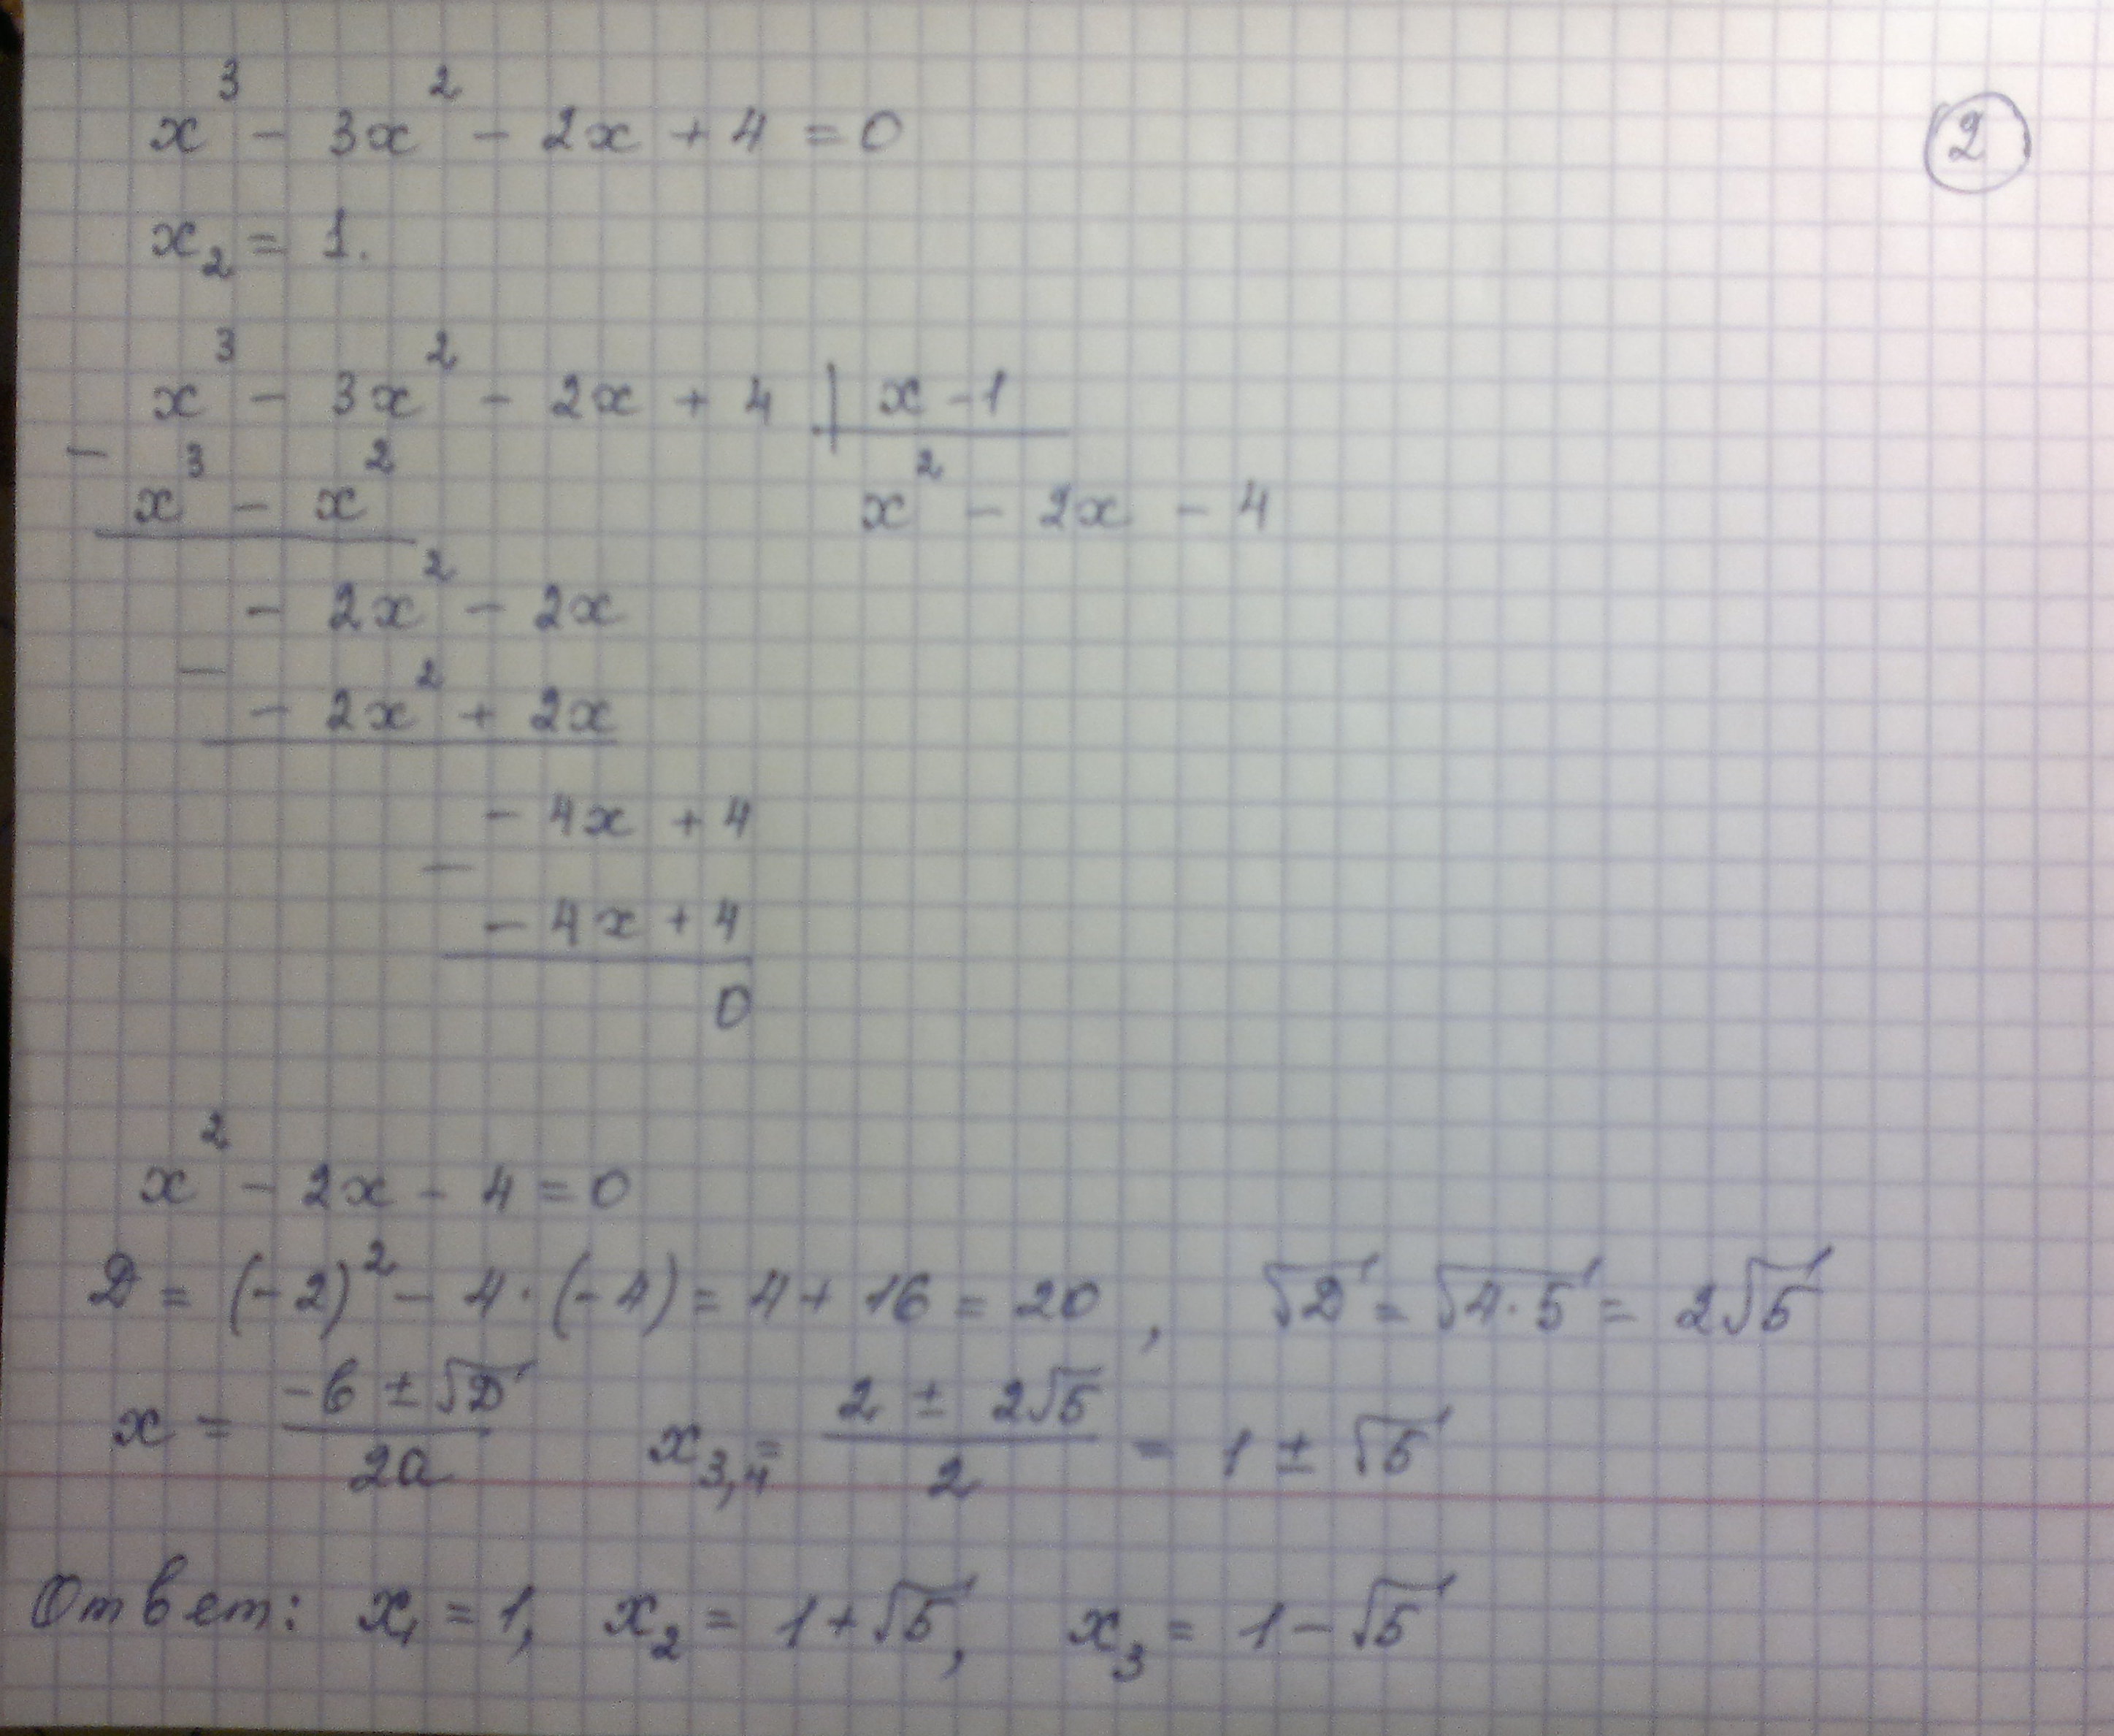 x³ - 3x² - 2x + 4 = 0
②
x₂ = 1.
x³ - 3x² - 2x + 4 | x - 1
- x³ - x²
x² - 2x - 4
- 2x² - 2x
-
- 2x² + 2x
- 4x + 4
-
- 4x + 4
0
x² - 2x - 4 = 0
D = (-2)² - 4·(-4) = 4 + 16 = 20 , √D = √4·5 = 2√5
x = (-b ± √D)/2a x₃,₄ = (2 ± 2√5)/2 = 1 ± √5
Ответ: x₁ = 1, x₂ = 1 + √5, x₃ = 1 - √5